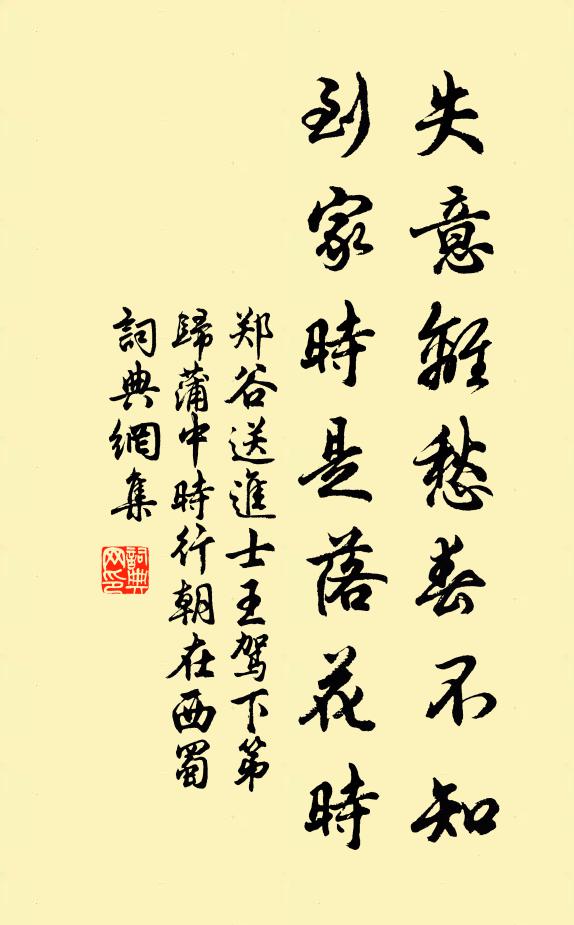 失意離愁春不知
到家時是落花時
郑谷送進士王駕下第
歸蒲中時行朝在西蜀
詞典網集
詞典网印